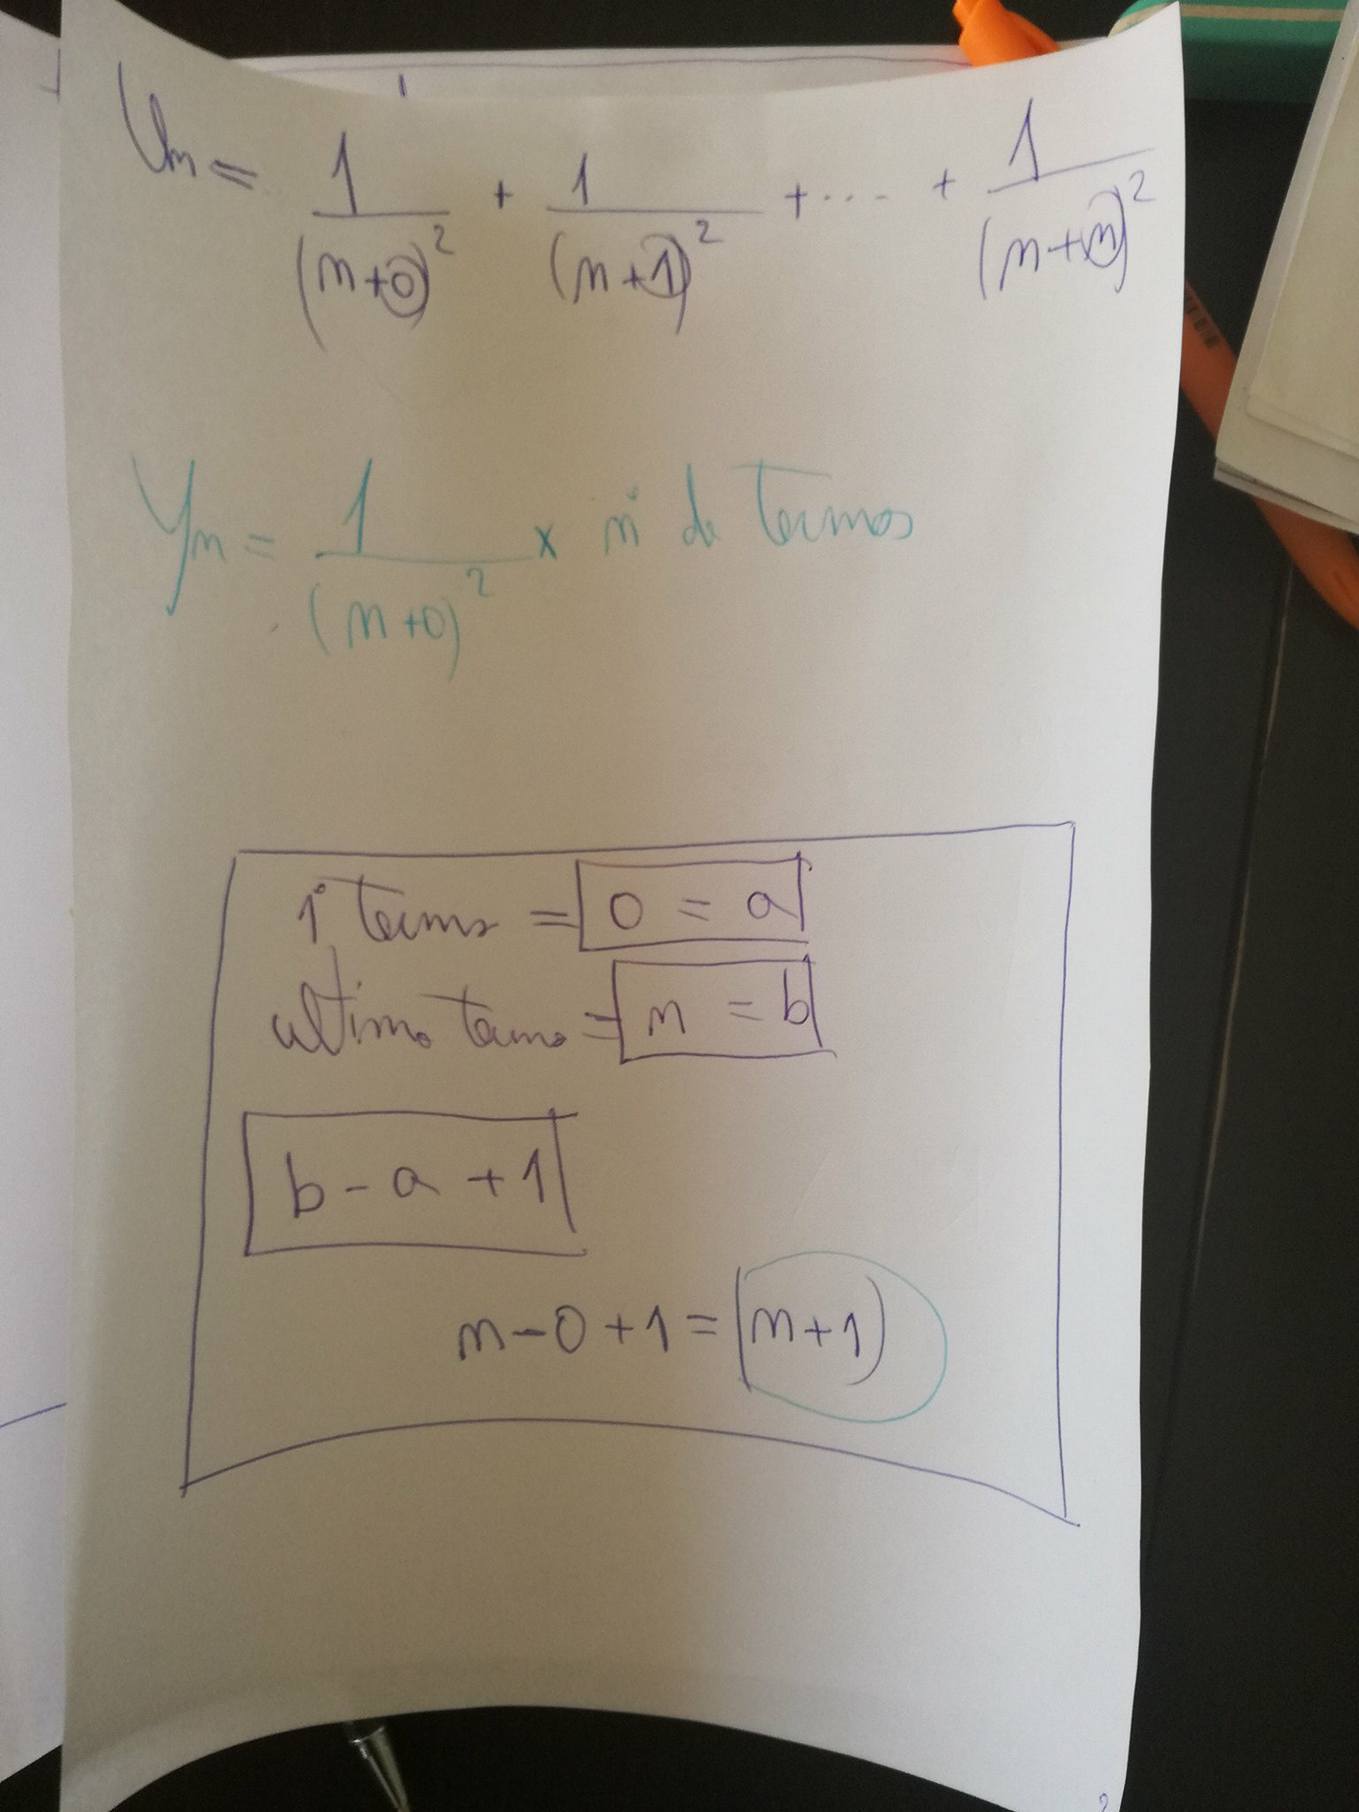 Un = 1/(n+0)² + 1/(n+1)² + .... + 1/(n+n)²
Yn = 1/(n+0)² x nº de termos
1º termo = 0 = a
ultimo termo = n = b
b - a + 1
n - 0 + 1 = (n+1)